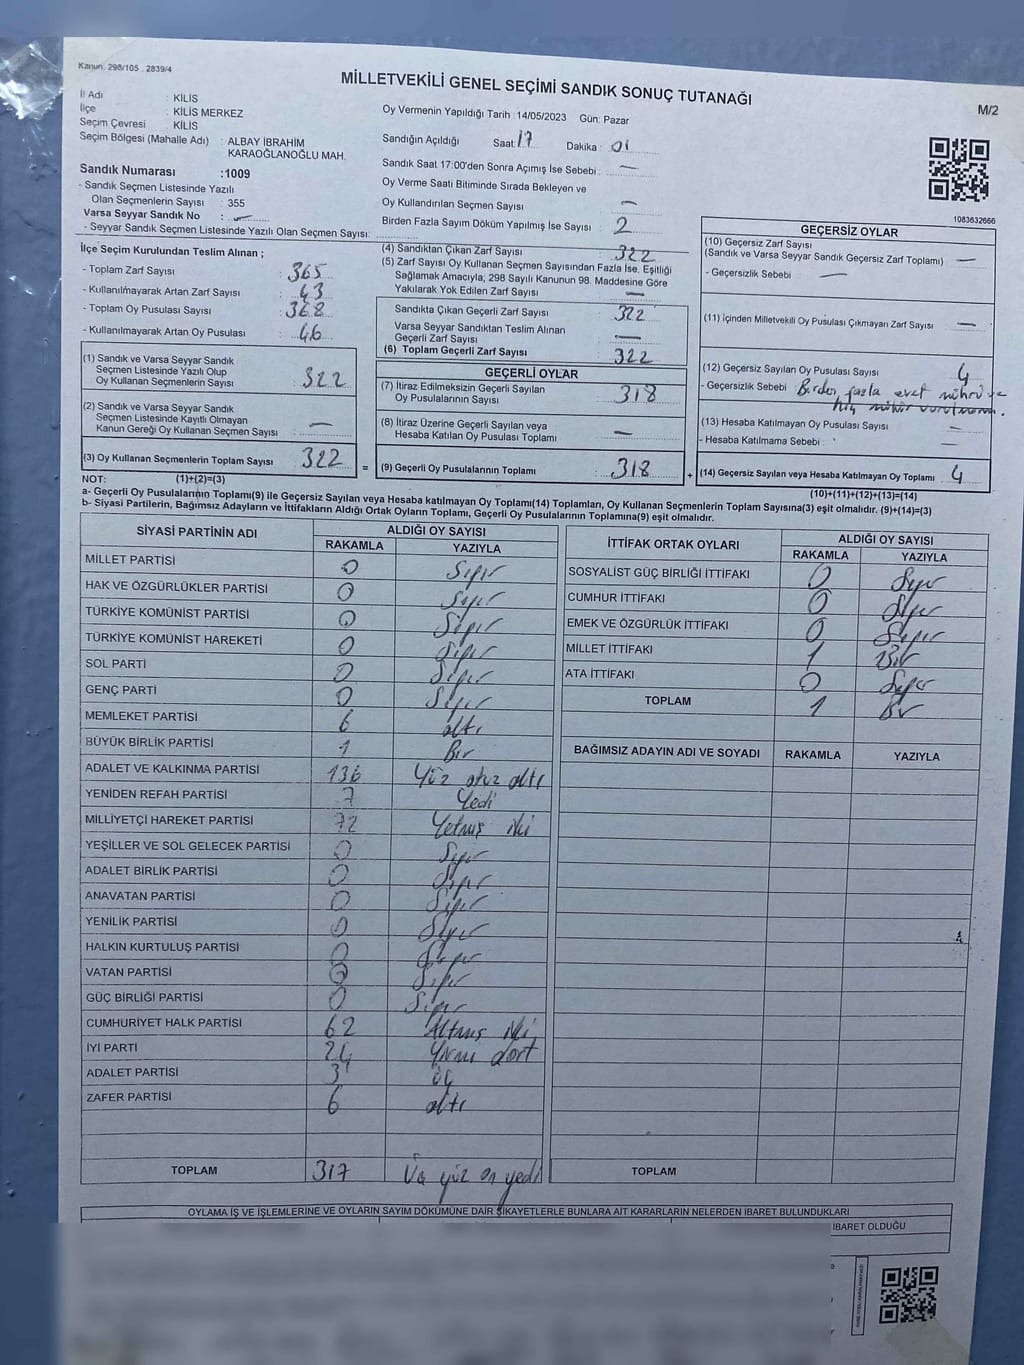 Kanun: 298/105 , 2839/4
MİLLETVEKİLİ GENEL SEÇİMİ SANDIK SONUÇ TUTANAĞI
M/2
İl Adı : KİLİS
İlçe : KİLİS MERKEZ
Seçim Çevresi : KİLİS
Seçim Bölgesi (Mahalle Adı) : ALBAY İBRAHİM
KARAOĞLANOĞLU MAH.
Sandık Numarası :1009
- Sandık Seçmen Listesinde Yazılı
Olan Seçmenlerin Sayısı : 355
Varsa Seyyar Sandık No : —
- Seyyar Sandık Seçmen Listesinde Yazılı Olan Seçmen Sayısı:
Oy Vermenin Yapıldığı Tarih :14/05/2023 Gün: Pazar
Sandığın Açıldığı Saat: 17 Dakika : 01
Sandık Saat 17:00'den Sonra Açımış İse Sebebi : —
Oy Verme Saati Bitiminde Sırada Bekleyen ve
Oy Kullandırılan Seçmen Sayısı —
Birden Fazla Sayım Döküm Yapılmış İse Sayısı : 2
1083632666
İlçe Seçim Kurulundan Teslim Alınan ;
- Toplam Zarf Sayısı : 365
- Kullanılmayarak Artan Zarf Sayısı : 43
- Toplam Oy Pusulası Sayısı : 368
- Kullanılmayarak Artan Oy Pusulası : 46
(1) Sandık ve Varsa Seyyar Sandık
Seçmen Listesinde Yazılı Olup
Oy Kullanan Seçmenlerin Sayısı : 322
(2) Sandık ve Varsa Seyyar Sandık
Seçmen Listesinde Kayıtlı Olmayan
Kanun Gereği Oy Kullanan Seçmen Sayısı : —
(3) Oy Kullanan Seçmenlerin Toplam Sayısı 322 =
(4) Sandıktan Çıkan Zarf Sayısı : 322
(5) Zarf Sayısı Oy Kullanan Seçmen Sayısından Fazla İse, Eşitliği
Sağlamak Amacıyla; 298 Sayılı Kanunun 98. Maddesine Göre
Yakılarak Yok Edilen Zarf Sayısı : —
Sandıkta Çıkan Geçerli Zarf Sayısı : 322
Varsa Seyyar Sandıktan Teslim Alınan
Geçerli Zarf Sayısı : —
(6) Toplam Geçerli Zarf Sayısı : 322
GEÇERLİ OYLAR
(7) İtiraz Edilmeksizin Geçerli Sayılan
Oy Pusulalarının Sayısı : 318
(8) İtiraz Üzerine Geçerli Sayılan veya
Hesaba Katılan Oy Pusulası Toplamı : —
(9) Geçerli Oy Pusulalarının Toplamı : 318 +
GEÇERSİZ OYLAR
(10) Geçersiz Zarf Sayısı
(Sandık ve Varsa Seyyar Sandık Geçersiz Zarf Toplamı) —
- Geçersizlik Sebebi : —
(11) İçinden Milletvekili Oy Pusulası Çıkmayan Zarf Sayısı : —
(12) Geçersiz Sayılan Oy Pusulası Sayısı : 4
- Geçersizlik Sebebi : Birden fazla evet mührü ve
hiç mühür vurulmamış.
(13) Hesaba Katılmayan Oy Pusulası Sayısı : —
- Hesaba Katılmama Sebebi : —
(14) Geçersiz Sayılan veya Hesaba Katılmayan Oy Toplamı : 4
NOT: (1)+(2)=(3)
(10)+(11)+(12)+(13)=(14)
a- Geçerli Oy Pusulalarının Toplamı(9) ile Geçersiz Sayılan veya Hesaba katılmayan Oy Toplamı(14) Toplamları, Oy Kullanan Seçmenlerin Toplam Sayısına(3) eşit olmalıdır. (9)+(14)=(3)
b- Siyasi Partilerin, Bağımsız Adayların ve İttifakların Aldığı Ortak Oyların Toplamı, Geçerli Oy Pusulalarının Toplamına(9) eşit olmalıdır.
SİYASİ PARTİNİN ADI ALDIĞI OY SAYISI
RAKAMLA YAZIYLA
MİLLET PARTİSİ 0 Sıfır
HAK VE ÖZGÜRLÜKLER PARTİSİ 0 Sıfır
TÜRKİYE KOMÜNİST PARTİSİ 0 Sıfır
TÜRKİYE KOMÜNİST HAREKETİ 0 Sıfır
SOL PARTİ 0 Sıfır
GENÇ PARTİ 0 Sıfır
MEMLEKET PARTİSİ 6 altı
BÜYÜK BİRLİK PARTİSİ 1 Bir
ADALET VE KALKINMA PARTİSİ 136 Yüz otuz altı
YENİDEN REFAH PARTİSİ 7 Yedi
MİLLİYETÇİ HAREKET PARTİSİ 72 Yetmiş iki
YEŞİLLER VE SOL GELECEK PARTİSİ 0 Sıfır
ADALET BİRLİK PARTİSİ 0 Sıfır
ANAVATAN PARTİSİ 0 Sıfır
YENİLİK PARTİSİ 0 Sıfır
HALKIN KURTULUŞ PARTİSİ 0 Sıfır
VATAN PARTİSİ 0 Sıfır
GÜÇ BİRLİĞİ PARTİSİ 0 Sıfır
CUMHURİYET HALK PARTİSİ 62 Altmış iki
İYİ PARTİ 24 Yirmi dört
ADALET PARTİSİ 3 üç
ZAFER PARTİSİ 6 altı
TOPLAM 317 Üç yüz on yedi
İTTİFAK ORTAK OYLARI ALDIĞI OY SAYISI
RAKAMLA YAZIYLA
SOSYALİST GÜÇ BİRLİĞİ İTTİFAKI 0 Sıfır
CUMHUR İTTİFAKI 0 Sıfır
EMEK VE ÖZGÜRLÜK İTTİFAKI 0 Sıfır
MİLLET İTTİFAKI 1 Bir
ATA İTTİFAKI 0 Sıfır
TOPLAM 1 Bir
BAĞIMSIZ ADAYIN ADI VE SOYADI RAKAMLA YAZIYLA
TOPLAM
OYLAMA İŞ VE İŞLEMLERİNE VE OYLARIN SAYIM DÖKÜMÜNE DAİR ŞİKAYETLERLE BUNLARA AİT KARARLARIN NELERDEN İBARET BULUNDUKLARI
İBARET OLDUĞU